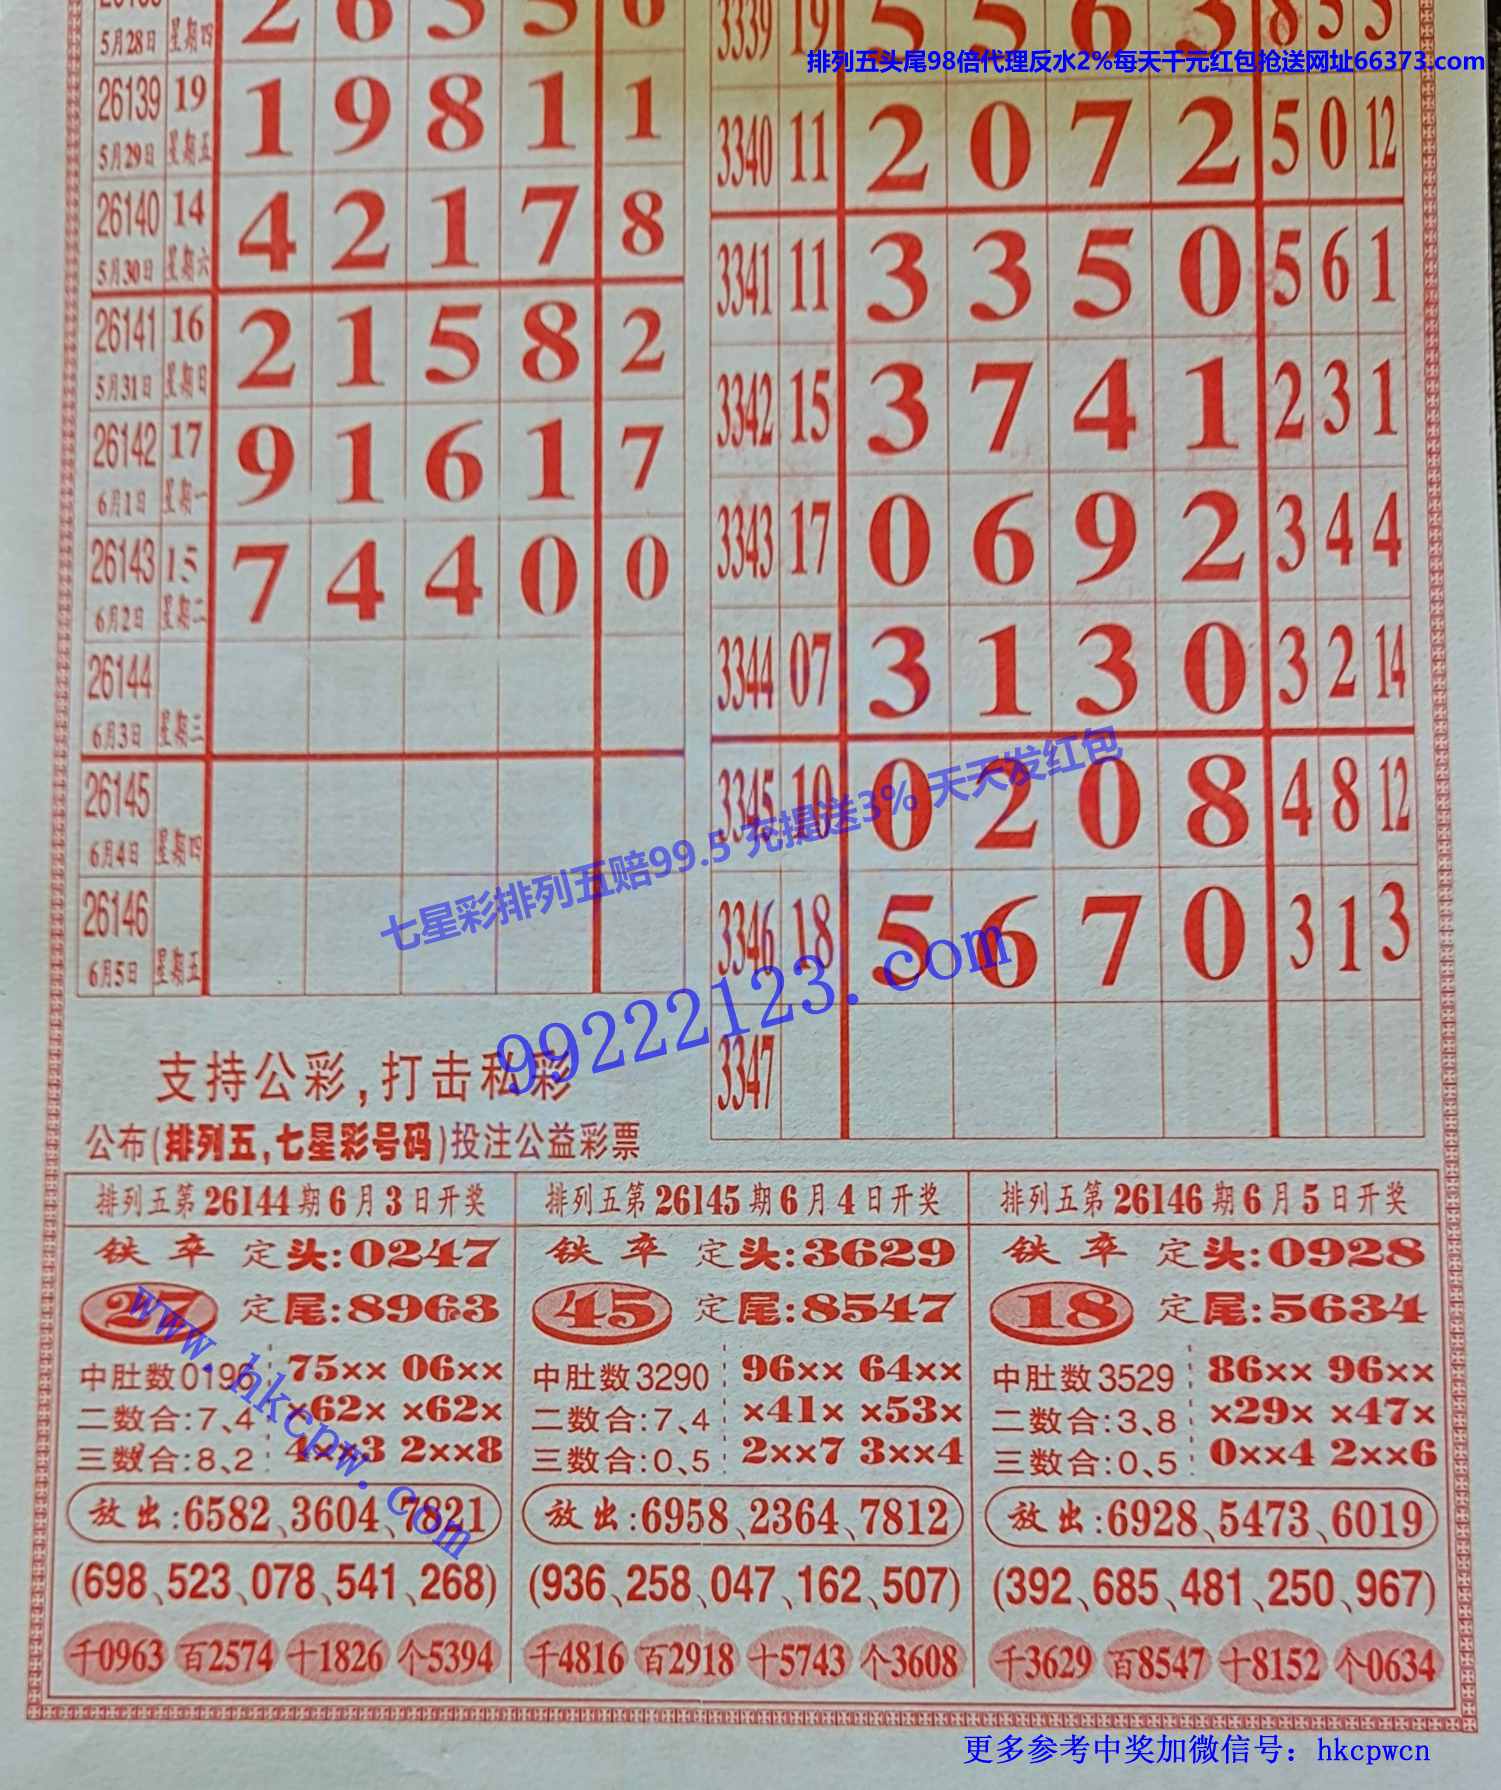 5月28日 星期四 2 6 3 5 6
26139 19 1 9 8 1 1
5月29日 星期五
26140 14 4 2 1 7 8
5月30日 星期六
26141 16 2 1 5 8 2
5月31日 星期日
26142 17 9 1 6 1 7
6月1日 星期一
26143 15 7 4 4 0 0
6月2日 星期二
26144
6月3日 星期三
26145
6月4日 星期四
26146
6月5日 星期五
3339 19 5 5 6 3 8 5 5
排列五头尾98倍代理反水2%每天千元红包抢送网址66373.com
3340 11 2 0 7 2 5 0 12
3341 11 3 3 5 0 5 6 1
3342 15 3 7 4 1 2 3 1
3343 17 0 6 9 2 3 4 4
3344 07 3 1 3 0 3 2 14
3345 10 0 2 0 8 4 8 12
3346 18 5 6 7 0 3 1 3
3347
七星彩排列五赔99.5 充提送3% 天天发红包
99222123.com
支持公彩,打击私彩
公布(排列五,七星彩号码)投注公益彩票
排列五第26144期6月3日开奖
铁卒 定头:0247
27 定尾:8963
中肚数0196 75×× 06××
二数合:7、4 ×62× ×62×
三数合:8、2 4××3 2××8
放出:6582、3604、7821
(698、523、078、541、268)
千0963 百2574 十1826 个5394
排列五第26145期6月4日开奖
铁卒 定头:3629
45 定尾:8547
中肚数3290 96×× 64××
二数合:7、4 ×41× ×53×
三数合:0、5 2××7 3××4
放出:6958、2364、7812
(936、258、047、162、507)
千4816 百2918 十5743 个3608
排列五第26146期6月5日开奖
铁卒 定头:0928
18 定尾:5634
中肚数3529 86×× 96××
二数合:3、8 ×29× ×47×
三数合:0、5 0××4 2××6
放出:6928、5473、6019
(392、685、481、250、967)
千3629 百8547 十8152 个0634
www.hkcpw.com
更多参考中奖加微信号：hkcpwcn